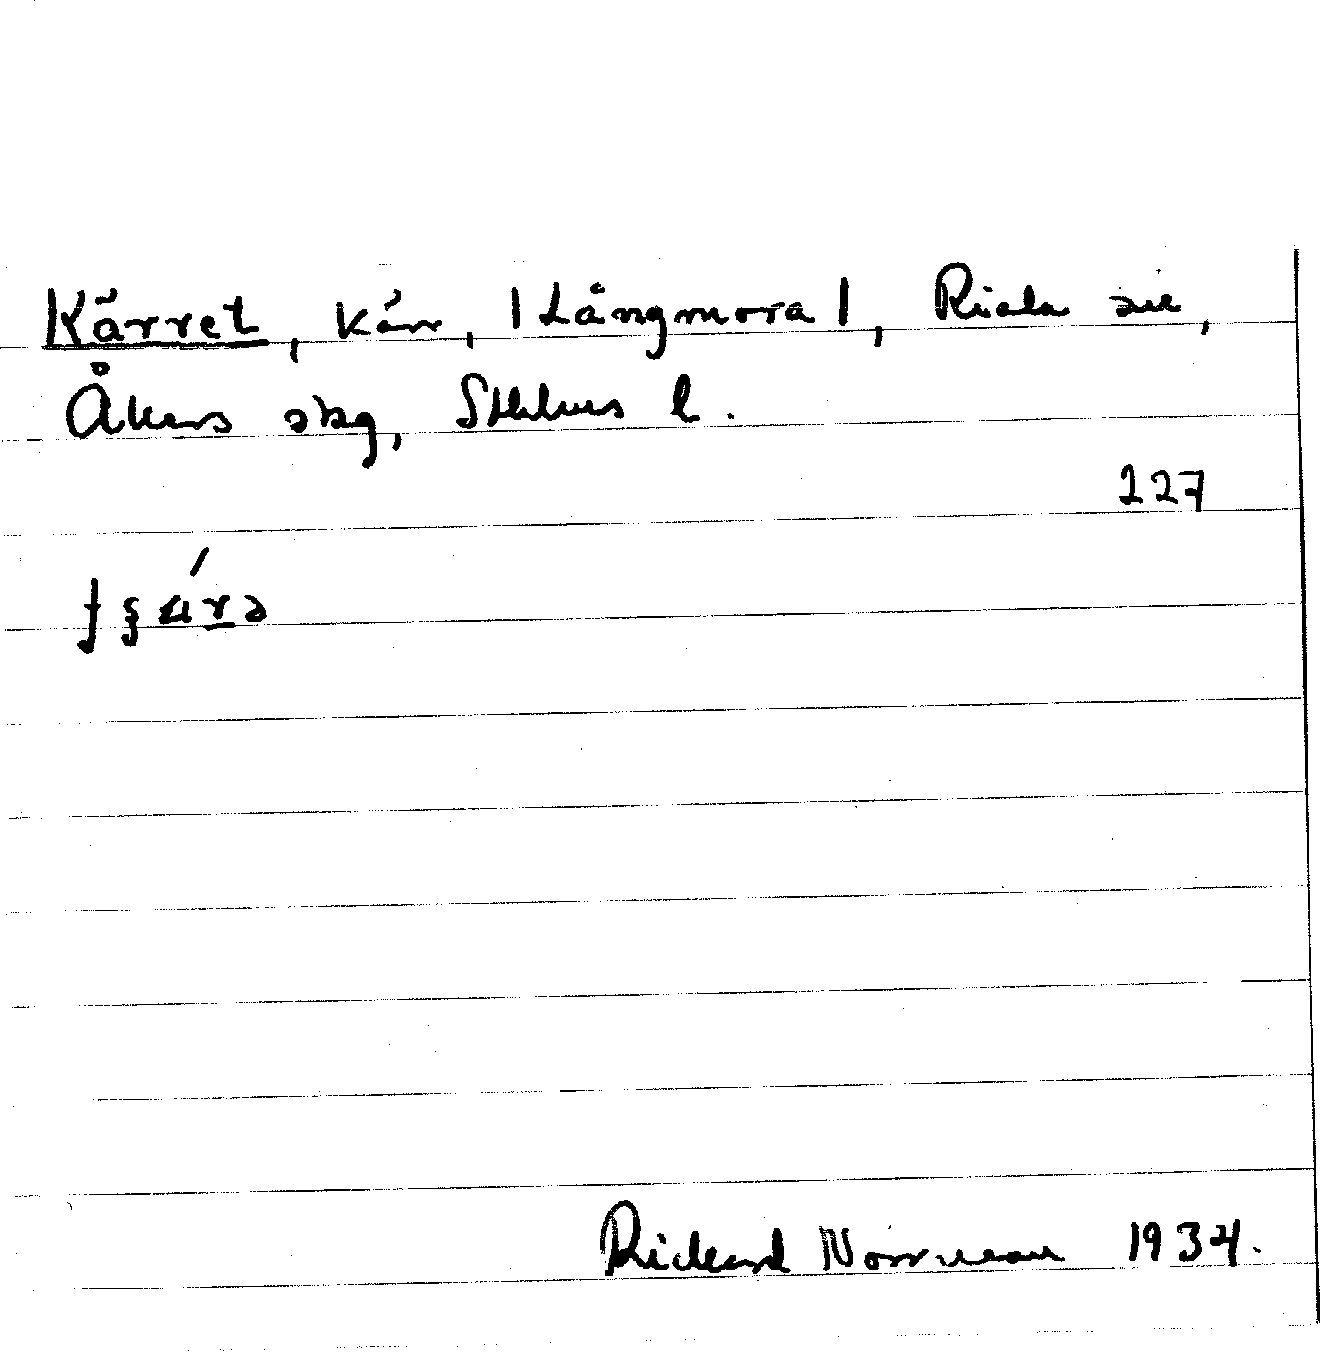 Kärret, kärr, |Långmora|, Riala sn,
Åkers skg, Sthlms l.
227
Rickard Norrman 1934.